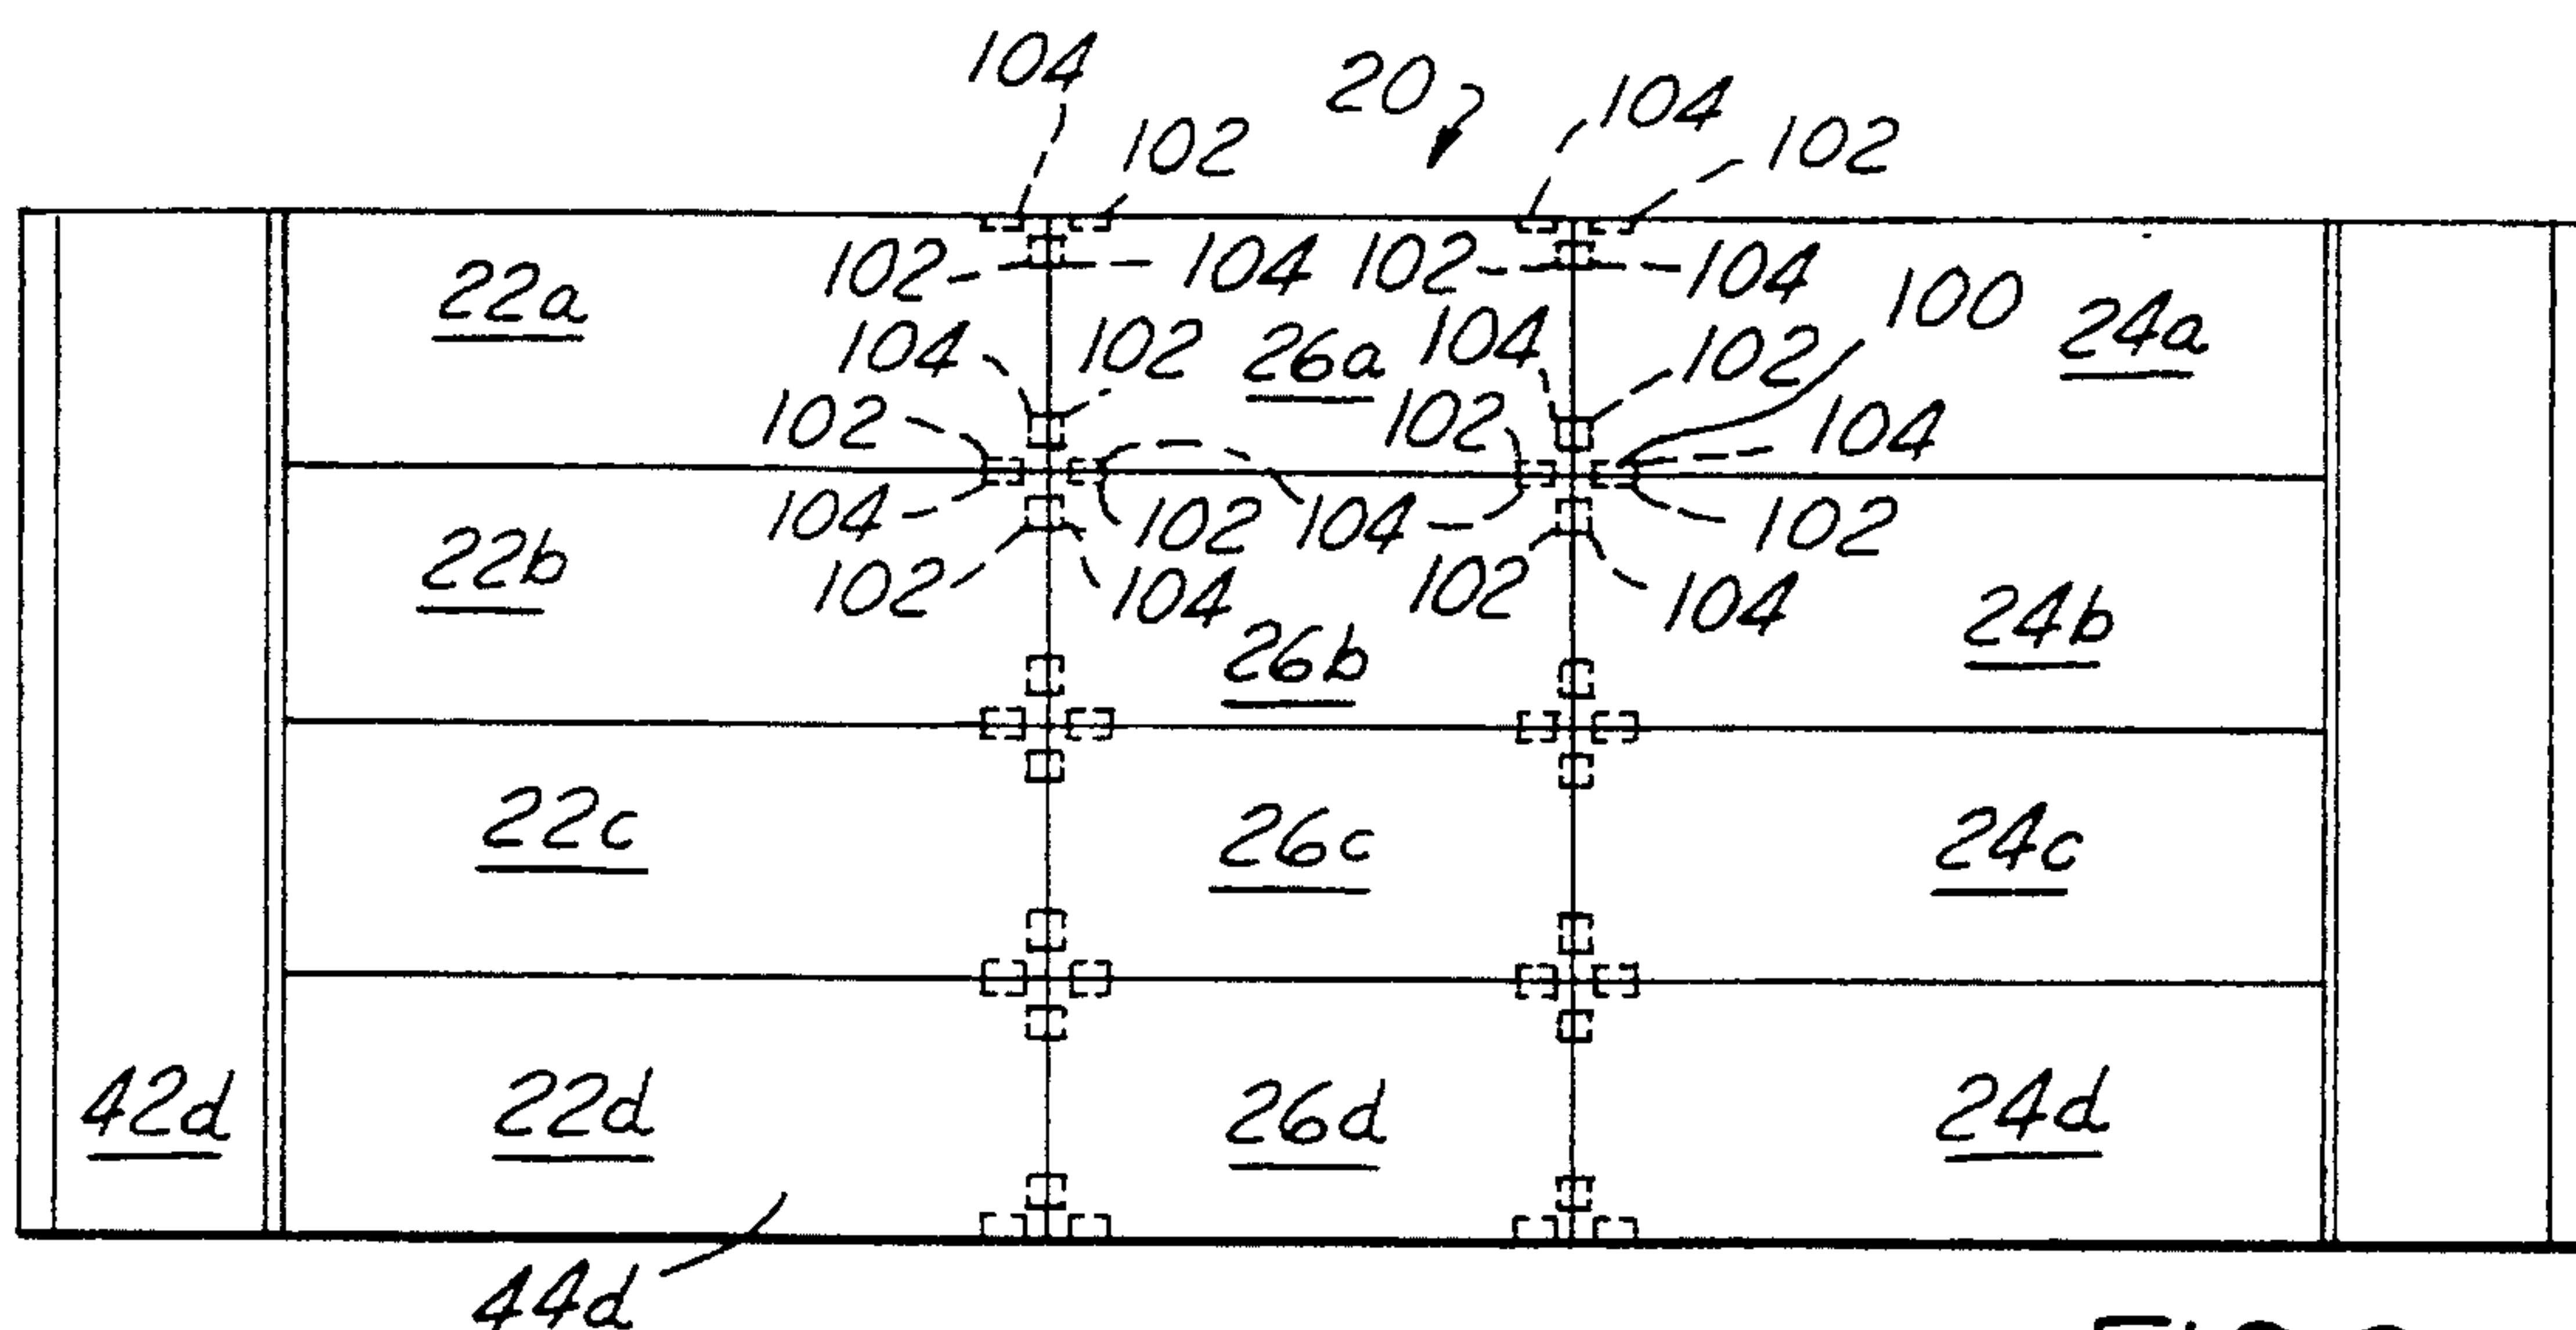 104
20
104
102
102
22a
102
104
102
104
100
24a
104
102
26a
104
102
102
102
104
104
102
104
102
22b
102
104
102
104
24b
26b
22c
26c
24c
42d
22d
26d
24d
44d